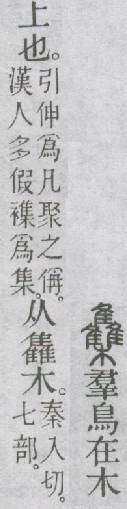 雧羣鳥在木
上也。
引伸爲凡聚之偁。
漢人多假襍爲集。
从雥木。
秦入切。
七部。